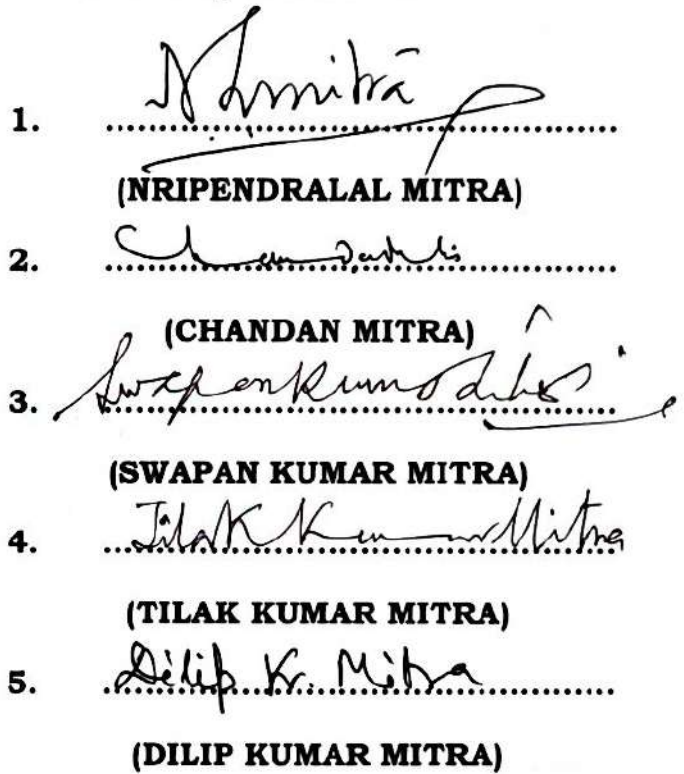 1. N Lmitra
(NRIPENDRALAL MITRA)
2.
(CHANDAN MITRA)
3. Swapan Kumar
(SWAPAN KUMAR MITRA)
4. Tilak Kumar Mitra
(TILAK KUMAR MITRA)
5. Dilip Kr. Mitra
(DILIP KUMAR MITRA)